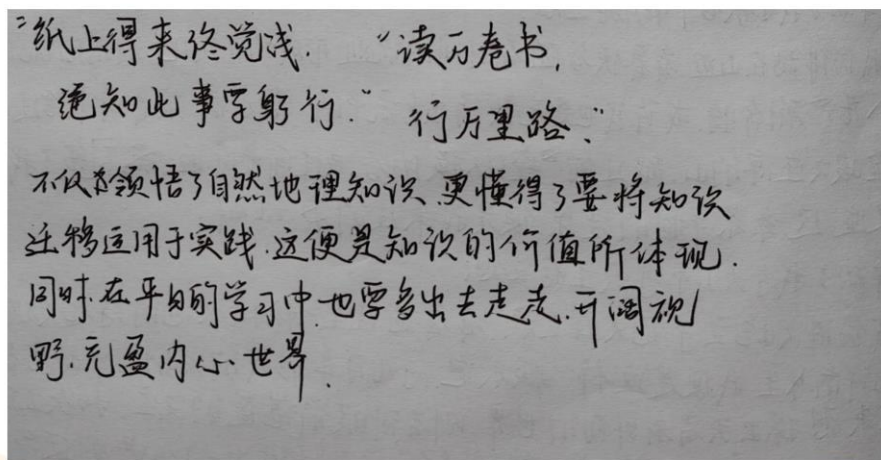 “纸上得来终觉浅. “读万卷书,
绝知此事要躬行.” 行万里路.”
不仅领悟了自然地理知识、更懂得了要将知识
迁移运用于实践.这便是知识的价值所体现.
同时.在平日的学习中.也要多出去走走.开阔视
野.充盈内心世界.